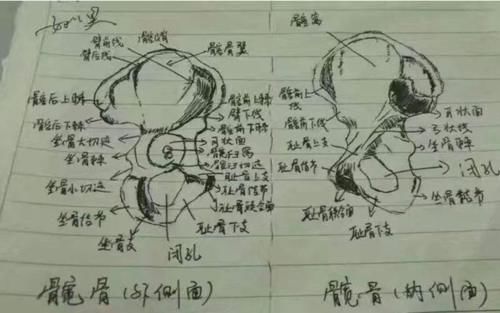 臀前线
臀后线
髂嵴
髂骨翼
髂后上棘
髂后下棘
坐骨大切迹
坐骨棘
坐骨小切迹
坐骨结节
坐骨支
髂前上棘
臀下线
髂前下棘
月状面
髋臼窝
髋臼切迹
耻骨上支
耻骨结节
耻骨联合面
耻骨下支
闭孔
髋骨(外侧面)
髂窝
耻骨上支
耻骨结节
耻骨联合面
耻骨下支
耳状面
弓状线
坐骨棘
闭孔
坐骨结节
髋骨(内侧面)